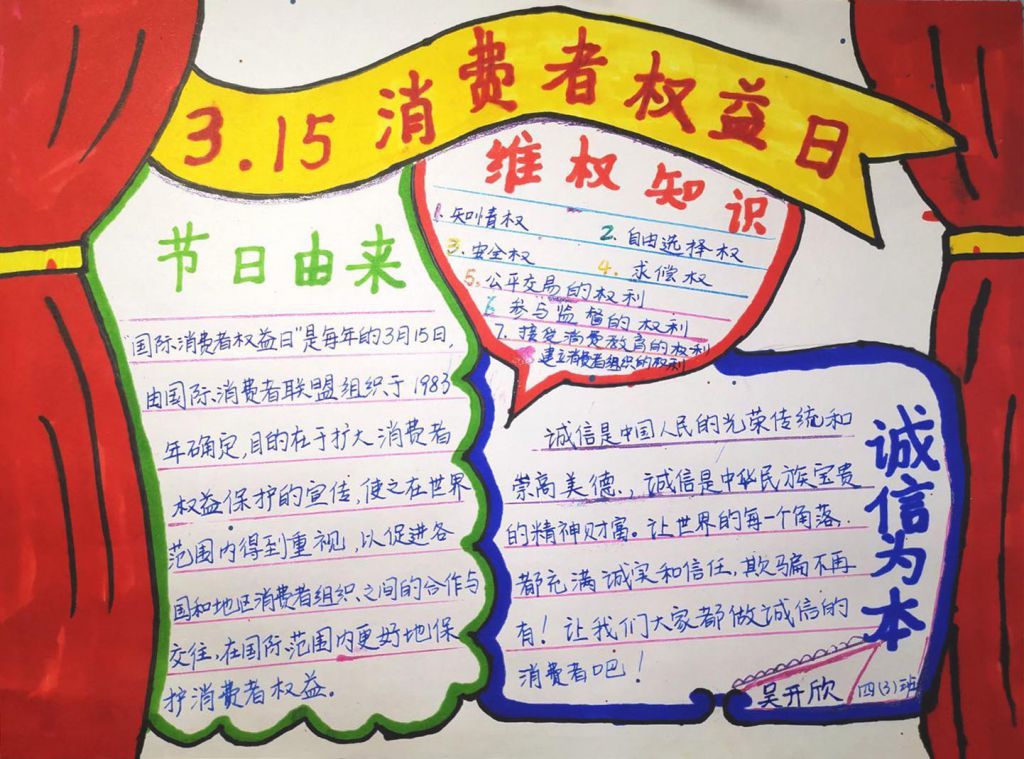 3.15消费者权益日
节日由来
"国际消费者权益日"是每年的3月15日,
由国际消费者联盟组织于1983
年确定,目的在于扩大消费者
权益保护的宣传,使之在世界
范围内得到重视,以促进各
国和地区消费者组织之间的合作与
交往,在国际范围内更好地保
护消费者权益。
维权知识
1.知情权 2.自由选择权
3.安全权 4.求偿权
5.公平交易的权利
6 参与监督的权利
7.接受消费教育的权利
建立消费者组织的权利
诚信为本
诚信是中国人民的光荣传统和
崇高美德.,诚信是中华民族宝贵
的精神财富。让世界的每一个角落
都充满诚实和信任,欺骗不再
有!让我们大家都做诚信的
消费者吧!
吴开欣 四(3)班